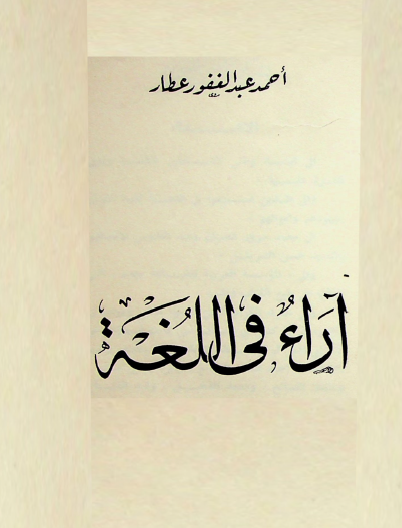 أحمد عبد الغفور عطار
آراءٌ في اللُغَة